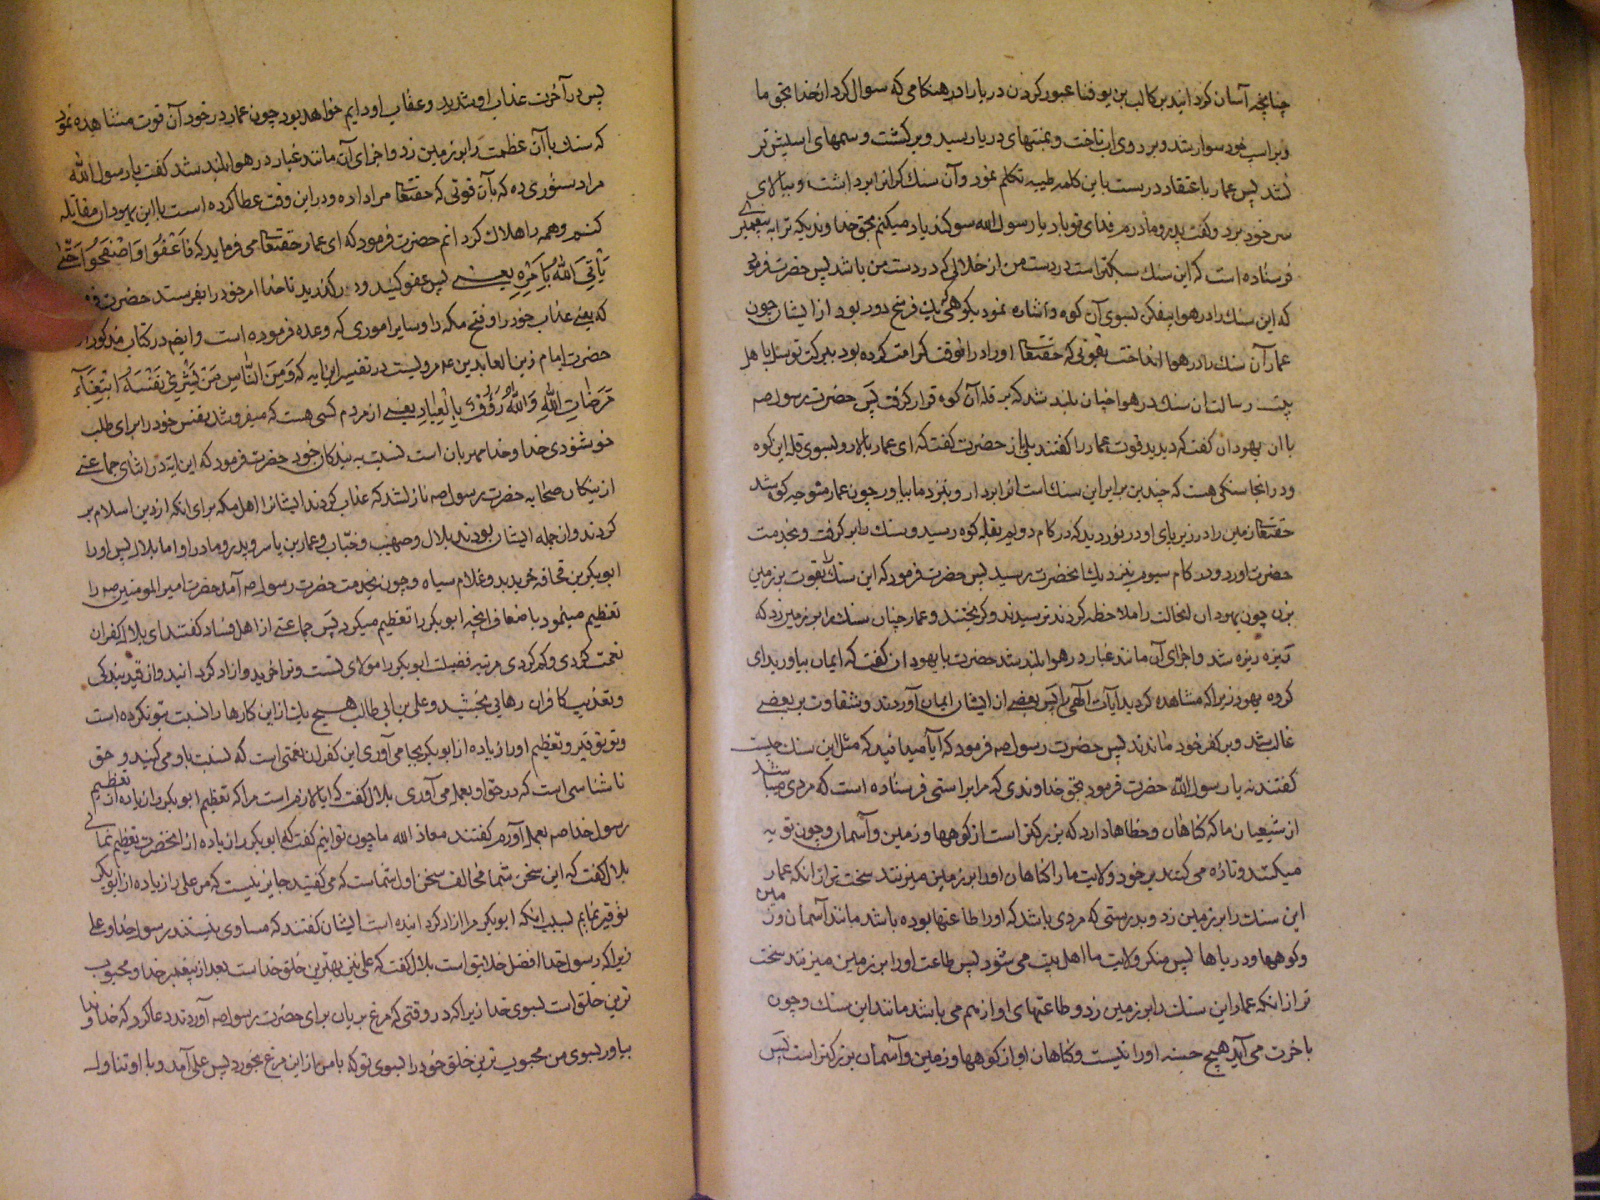 چنانچه آسان کردانید بر کالب بن یوفنا عبور کردن دریا را در هنکامی که سوال کرد از خدا بحق ما
و بر اسب خود سوار شد و بر روی آب تاخت و بمنتهای دریا رسید و برکشت و سمهای اسبش تر
نشد پس عمار با عتقاد درست باین کلمه طیبه تکلم نمود و آن سنک کران را برداشت و ببالای
سر خود برد و کفت پدر و مادرم فدای تو باد یا رسول الله سوکند یاد میکنم بحق خداوندیکه ترا به پیغمبری
فرستاده است که این سنک سبکتر است در دست من از خلالی که در دست من باشد پس حضرت فرمود
که این سنک را در هوا بیفکن بسوی آن کوه و اشاره نمود بکوهی که یک فرسخ دور بود از ایشان چون
عمار آن سنک را در هوا انداخت بقوتی که حقتعالی او را در انوقت کرامت کرده بود ببرکت توسل باهل
بیت رسالت ان سنک در هوا چنان بلند شد که بر قله آن کوه قرار کرفت پس حضرت رسول صم
با ان یهودان کفت که دیدید قوت عمار را کفتند بلی پس حضرت کفت که ای عمار بالا رو بسوی قله این کوه
و در انجا سنکی هست که چندین برابر این سنک است انرا بردار و بنزد ما بیاور چون عمار متوجه کوه شد
حقتعالی زمین را در زیر پای او در نوردید که در کام دویم بقله کوه رسید و سنک را برکرفت و بخدمت
حضرت اورد و در کام سیوم بنزدیک انحضرت رسید پس حضرت فرمود که این سنک را بقوت بر زمین
بزن چون یهودان انحالت را ملاحظه کردند ترسیدند و کریختند و عمار چنان سنک را بر زمین زد که
ریزه ریزه شد و اجزای آن مانند غبار در هوا بلند شد حضرت با یهودان کفت که ایمان بیاورید ای
کروه یهود زیرا که مشاهده کردید آیات الهی را پس بعضی از ایشان ایمان آوردند و شقاوت بر بعضی
غالب شد و بر کفر خود ماندند پس حضرت رسول صم فرمود که آیا میدانید که مثل این سنک چیست
کفتند نه یا رسول الله حضرت فرمود بحق خداوندی که مرا براستی فرستاده است که مردی میباشد
از شیعیان ما که کناهان و خطاها دارد که بزرکتر است از کوهها و زمین و آسمان و چون توبه
میکند و تازه می کند بر خود ولایت ما را کناهان او را بر زمین میزنند سخت تر از انکه عمار
این سنک را بر زمین زد و بدرستی که مردی باشد که او را طاعتها بوده باشد مانند آسمان و زمین
و کوهها و دریاها پس منکر ولایت ما اهل بیت می شود پس طاعت او را بر زمین میزنند سخت
تر از انکه عمار این سنک را بر زمین زد و طاعتهای او از هم می پاشد مانند این سنک و چون
باخرت می آید هیچ حسنه او را نیست و کناهان او از کوهها و زمین و آسمان بزرکتر است پس
پس در آخرت عذاب او شدید و عقاب او دایم خواهد بود چون عمار در خود آن قوت مشاهده نمود
که سنک با آن عظمت را بر زمین زد و اجزای آن مانند غبار در هوا بلند شد کفت یا رسول الله
مرا دستوری ده که بآن قوتی که حقتعالی مرا داده و در این وقت عطا کرده است با این یهودان مقاتله
کنم و همه را هلاک کردانم حضرت فرمود که ای عمار حقتعالی می فرماید که فَاعْفُوا وَاصْفَحُوا حَتّٰی
یَأْتِیَ اللّٰهُ بِأَمْرِهِ یعنی پس عفو کنید و در کذرید تا خدا امر خود را بفرستد حضرت
که یعنی عذاب خود را و فتح مکه را و سایر اموری که وعده فرموده است و ایضم در کتاب مذکور از
حضرت امام زین العابدین عم مرویست در تفسیر این ایه که وَمِنَ النّٰاسِ مَنْ یَشْرِی نَفْسَهُ ابْتِغٰآءَ
مَرْضٰاتِ اللّٰهِ وَاللّٰهُ رَؤُفٌ بِالْعِبٰادِ یعنی از مردم کسی هست که میفروشد نفس خود را برای طلب
خوشنودی خدا و خدا مهربان است نسبت به بندکان خود حضرت فرمود که این ایه در اثنای جماعتی
از نیکان صحابه حضرت رسول صم نازل شد که عذاب کردند ایشان را اهل مکه برای انکه از دین اسلام بر
کردند و از جمله ایشان بودند بلال و صهیب و خبّاب و عمار بن یاسر و پدر و مادر او اما بلال پس او را
ابوبکر بن قحافه خرید بدو غلام سیاه و چون بخدمت حضرت رسول صم آمد حضرت امیر المومنین صم را
تعظیم مینمود باضعاف انچه ابوبکر را تعظیم میکرد پس جماعتی از اهل فساد کفتند ای بلال کفران
نعمت کردی و کم کردی مرتبه فضیلت ابوبکر را مولای تست و ترا خرید و ازاد کردانید و از قید بندکی
و تعذیب کافران رهایی بخشید و علی بن ابی طالب هیچ یک از این کارها را نسبت بتو نکرده است
و تو توقیر و تعظیم او را زیاده از ابوبکر بجا می آوری این کفران نعمتی است که نسبت باو می کنید و حق
ناشناسی است که در حق او بعمل می آوری بلال کفت که ایا لازم است مرا که تعظیم ابوبکر را زیاده از تعظیم
رسول خدا صم بعمل آورم کفتند معاذ الله ما چون توانیم کفت که ابوبکر را زیاده از انحضرت تعظیم نمائی
بلال کفت که این سخن شما مخالف سخن اول شماست که می کفتید جایز نیست که من علی را زیاده از ابوبکر
توقیر نمایم بسبب انکه ابوبکر مرا ازاد کردانیده است ایشان کفتند که مساوی نیستند رسول خدا و علی
زیرا که رسول خدا افضل خلایق است بلال کفت که علی نیز بهترین خلق خداست بعد از پیغمبر خدا و محبوب
ترین خلق است بسوی خدا زیرا که در وقتی که مرغ بریان برای حضرت رسول صم آوردند دعا کرد که خداوندا
بیاور بسوی من محبوب ترین خلق خود را بسوی تو که با من از این مرغ بخورد پس علی آمد و با او تناول